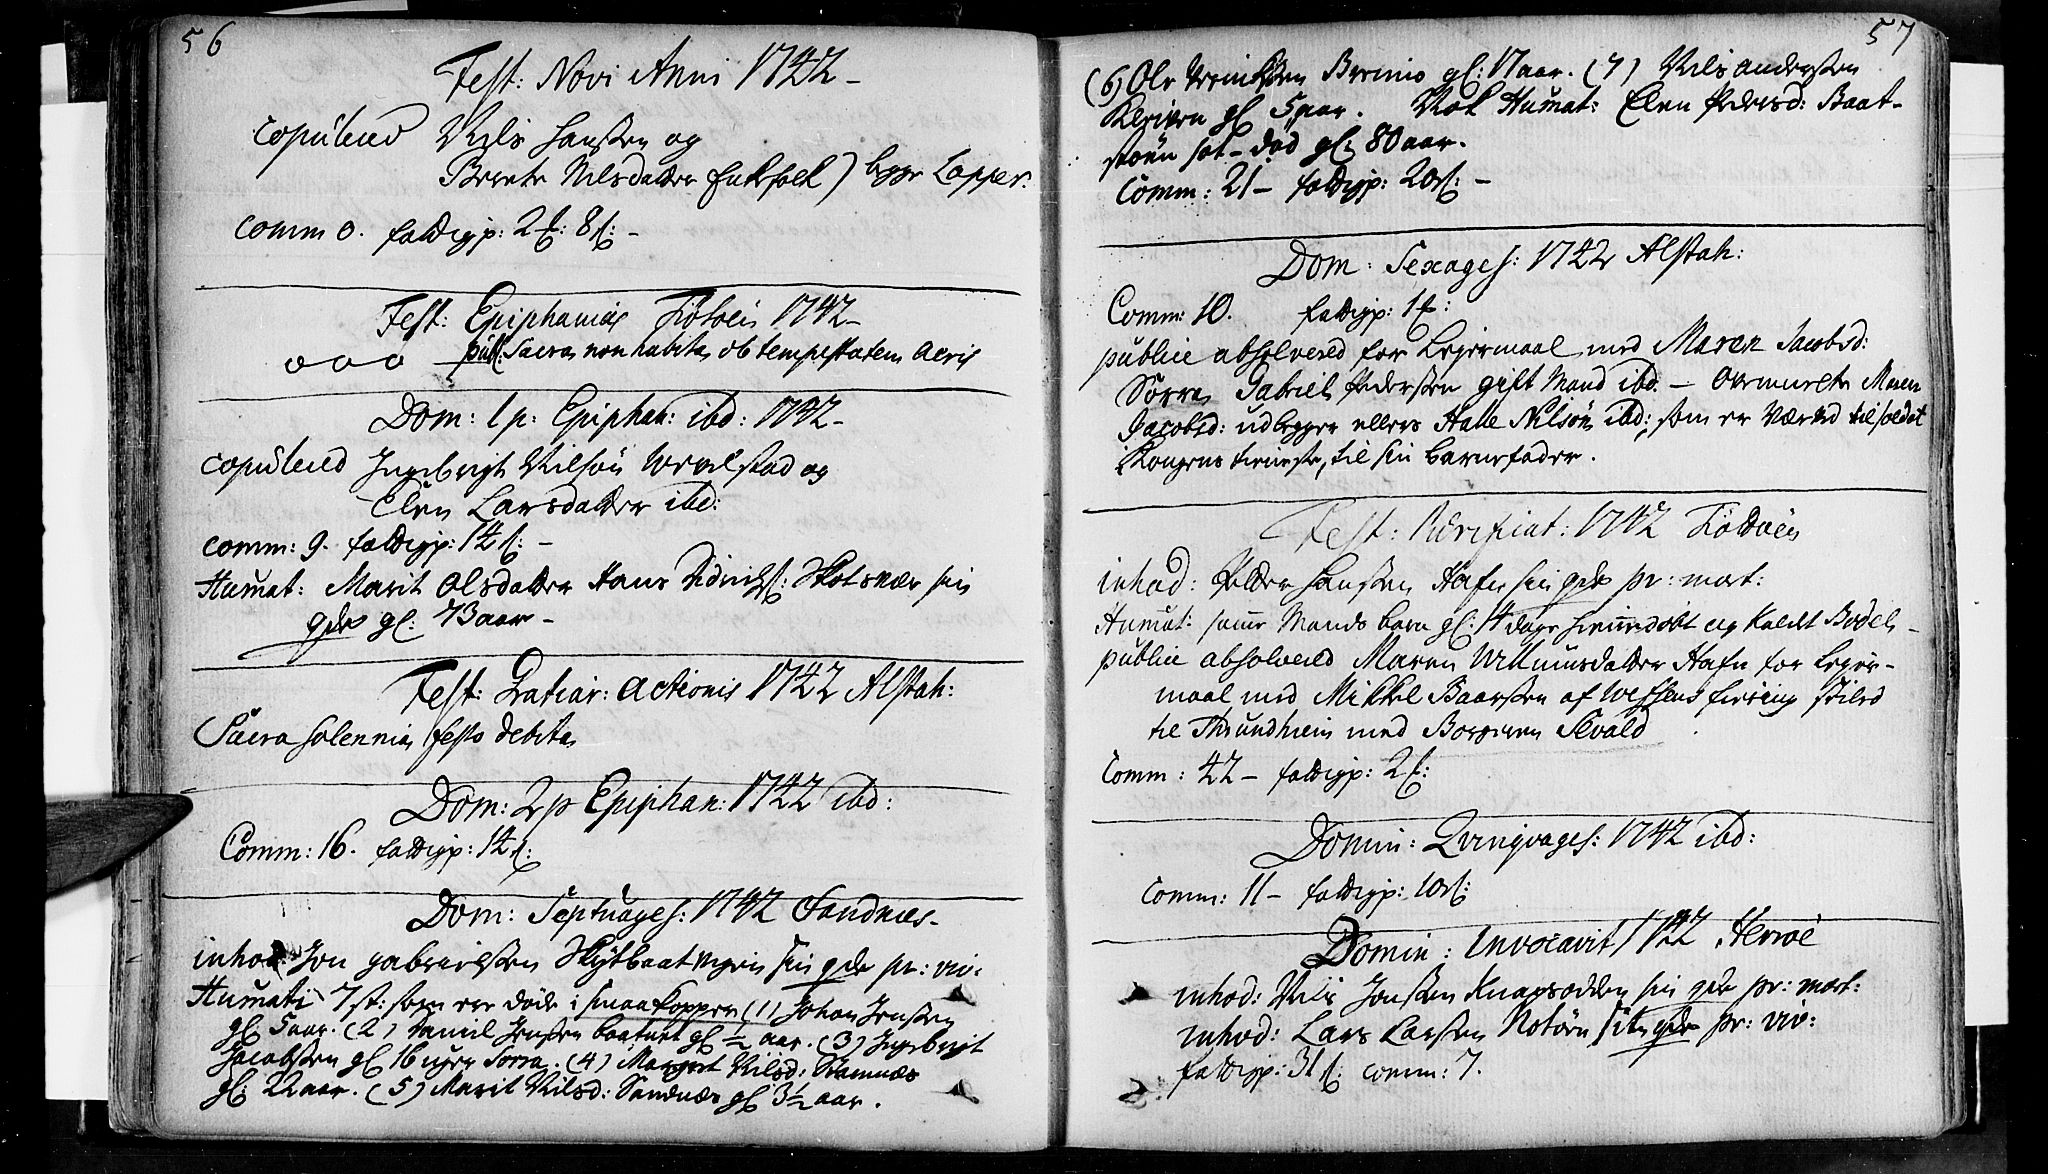 56
Fest: Novi Anni 1742 -
copulerede Nils Hanssen og
Berete Nilsdatter Enkefolk) begge Lapper.
comm 0. fattigp: 2 ℔: 8 ſ: -
Fest: Epiphanias Tiötöen 1742 -
ooo - publ: Sacra non habita ob tempestatem aeris
Dom: 1 p: Epiphan: ibd: 1742 -
copulered Ingebrigt Nilsøn og
Elen Larsdatter ibd:
comm: 9. fattigp: 14 ſ: -
Humat: Marit Olsdatter Hans Didrichs: sin
qde gl: 73 aar -
Fest: Gratiar: Actionis 1742 Alstah:
Sacra solennia festo debita
Dom: 2 p Epiphan: 1742 ibd:
Comm: 16. fattigp: 14 ſ:
Dom: Septuages: 1742 Sandnæs -
inhod: Jon gabrielssen sin qde pr: viv:
Humati 7 st: som ere døde i smaakopper (1) Johan Jenssen
gl 5 aar. (2) Daniel Jenssen gl ½ aar. (3) Ingebrigt
Jacobssen gl 16 uger Sorra. (4) Margret Nilsd: Stamnæs
gl: 22 aar. (5) Marit Nilsd: Sandnæs gl 3½ aar.
57
(6) Ole gl: 17 aar. (7) Nils anderssen
gl 5 aar. Nok Humat: Elen Pedersd: Baat-
død gl: 80 aar.
Comm: 21 - fattigp: 20 ſ: -
Dom: Sexages: 1742 Alstah:
Comm: 10. fattigp: 1 ℔:
publice absolvered for Legermaal med Maren Jacobsd:
Sorra Gabriel Pederssen gift Mand ibd. - Maren
Jacobsd: udlegger ellers Nilsøn ibd:, som er Værved til soldat
Kongens tieneste, til sin barnefader.
Fest: Purificat: 1742 Tiötöen
inhod: Peder Hanssen Hafn sin qde pr: mort:
Humat: samme Mands barn gl: 14 dage hiemmedøbt og Kaldet Bodel -
publice absolvered Maren Willumsdatter Hafn for Leger-
maal med Mikkel Baarssen af
til Thrundhiem med Borgeren Sevald
Comm: 42 - fattigp: 2 ℔:
Domin: Qvinqvages: 1742 ibd:
comm: 11 - fattigp: 10 ſ:
Domin: Invocavit 1742 Herröe
inhod: Nils Jonssen sin qde pr: mort:
inhod: Lars Larssen sin qde pr: viv:
fattigp: 31 ſ: comm: 7.